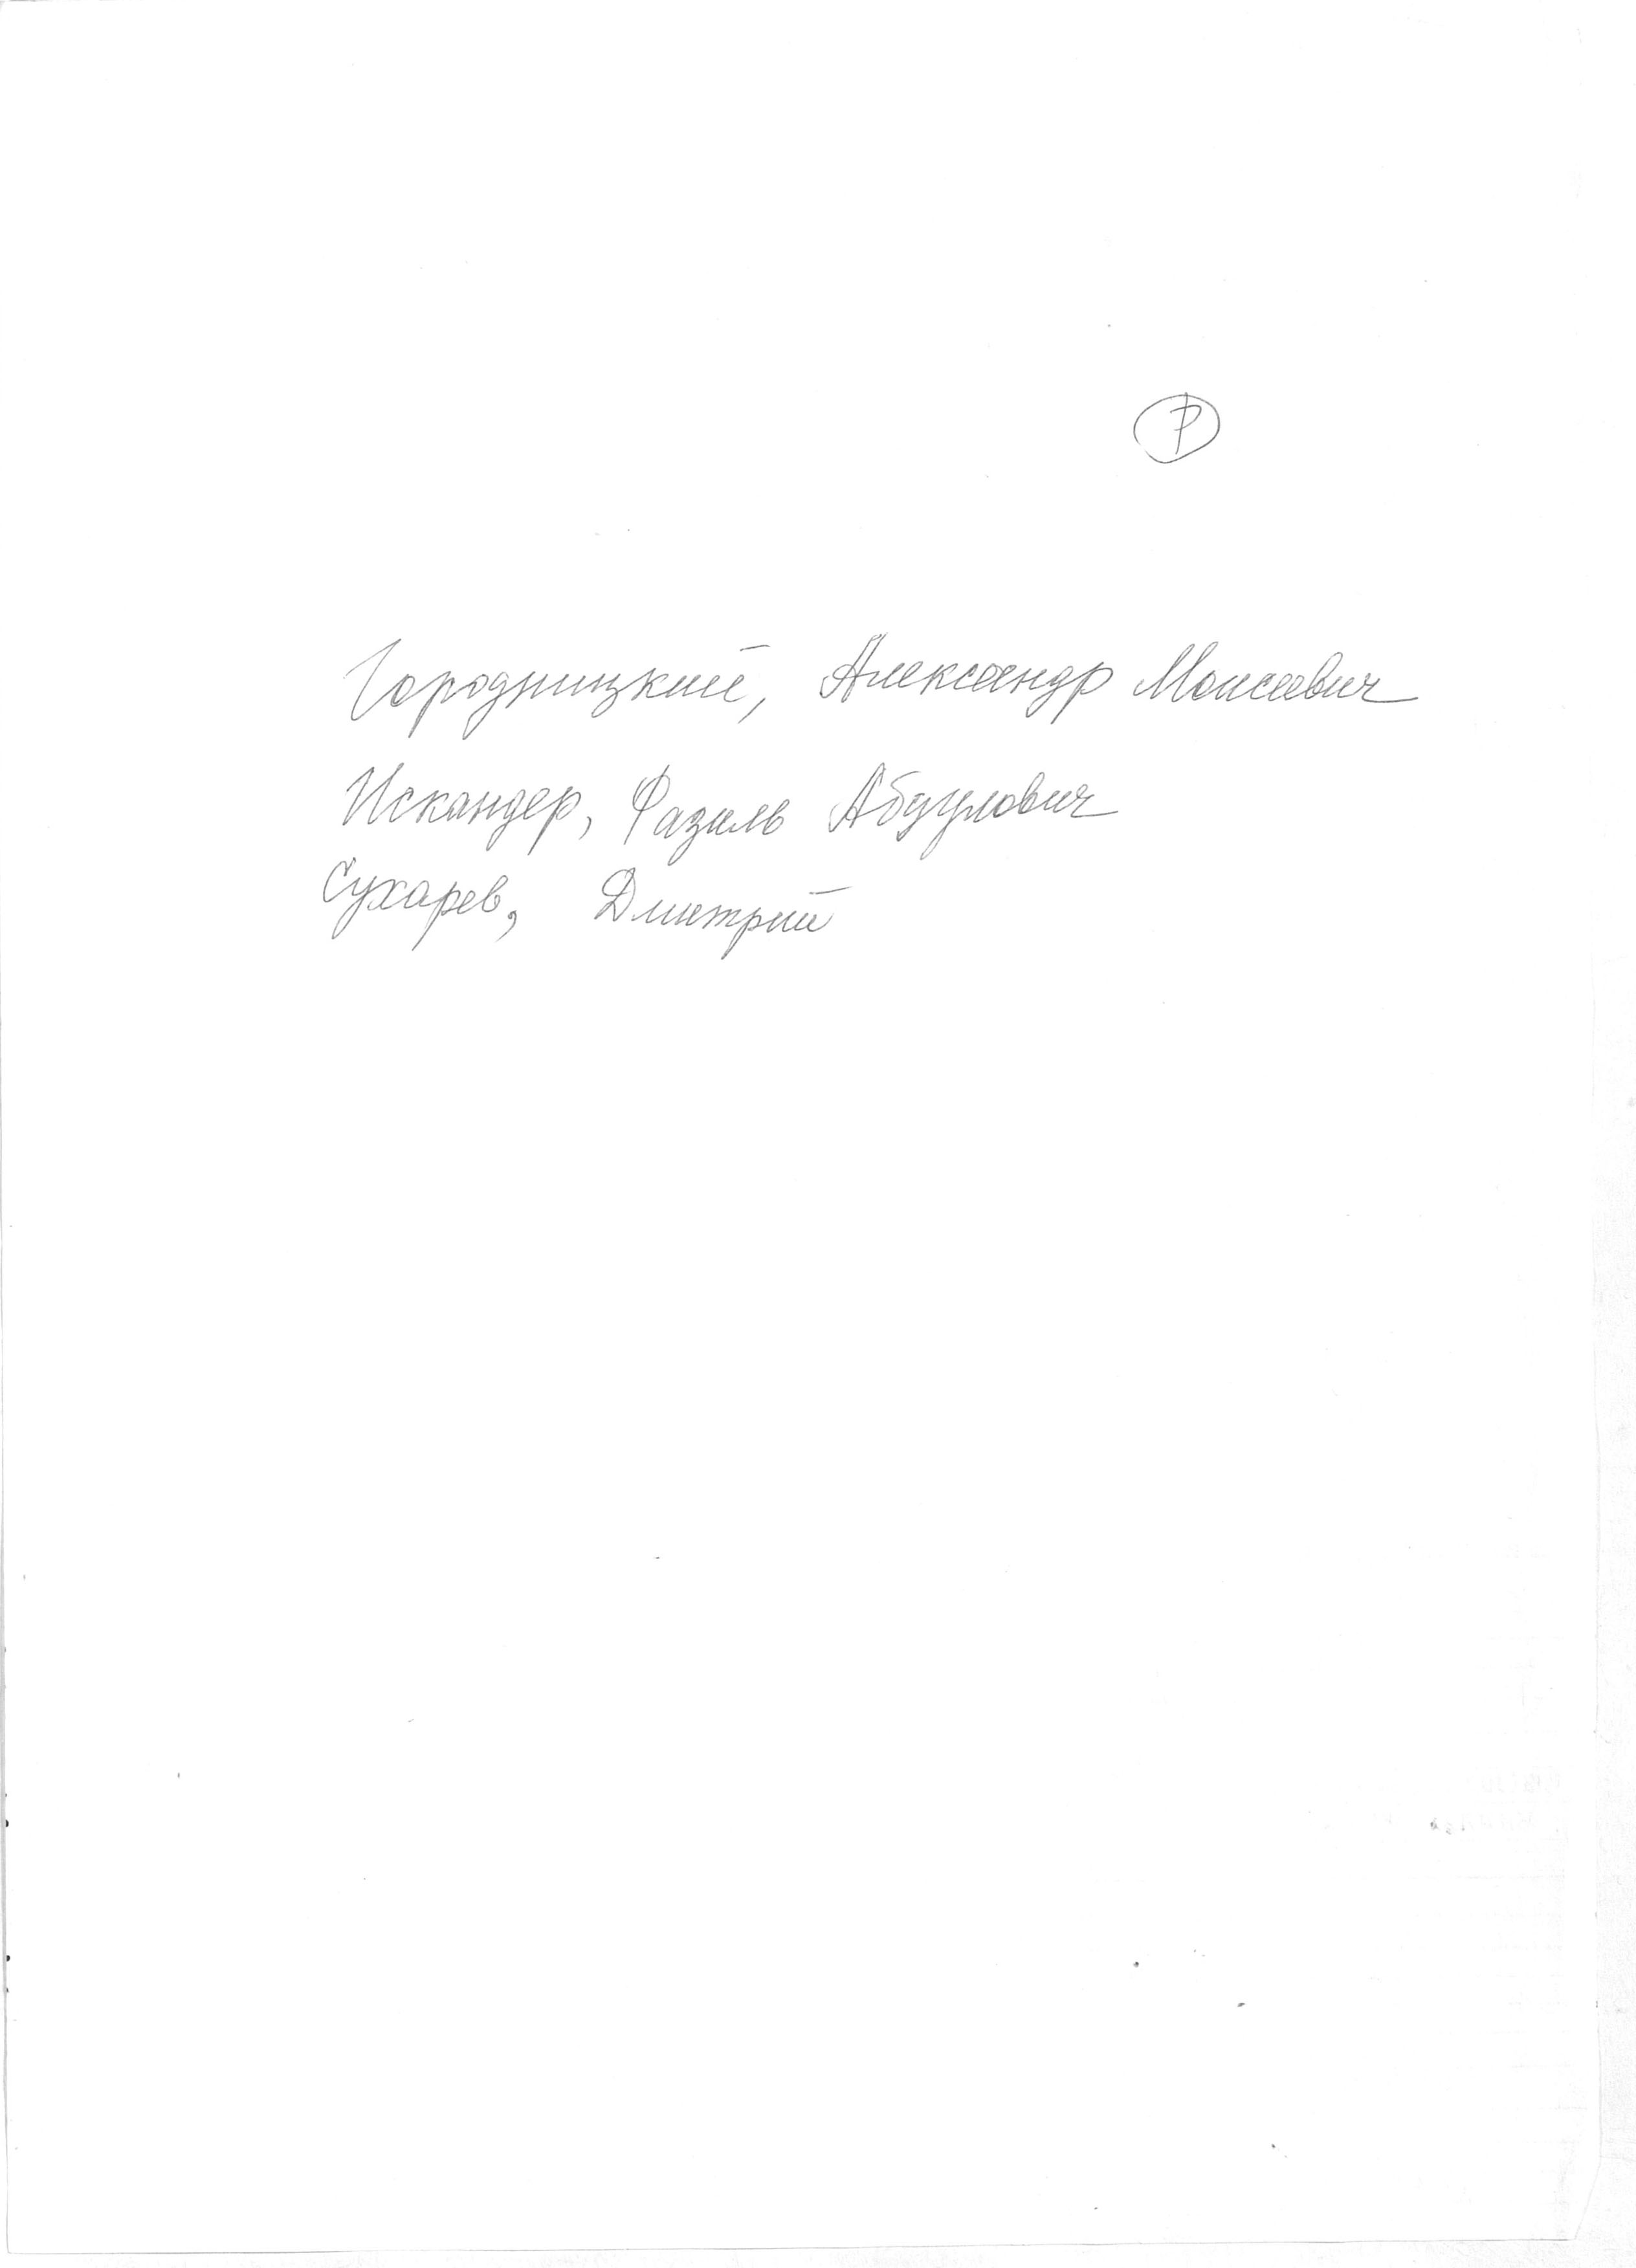 Р
Городницкий, Александр Моисеевич
Искандер, Фазиль Абдулович
Сухарев, Дмитрий